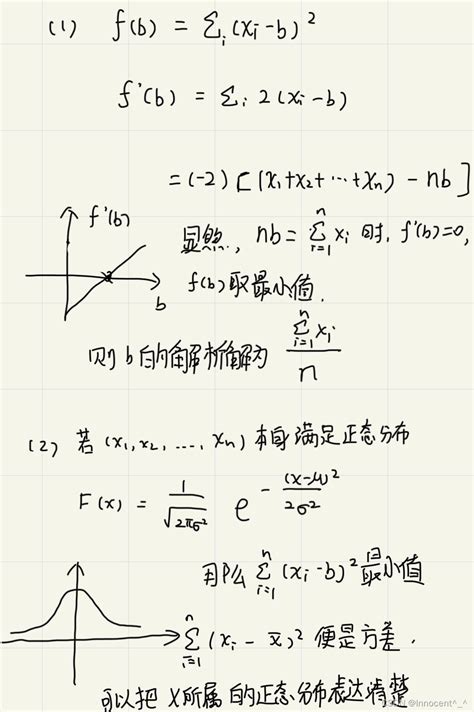 (1) f(b) = Σᵢ(xᵢ-b)²
f'(b) = Σᵢ 2(xᵢ-b)
= (-2) [(x₁+x₂+⋯+xₙ) - nb]
f'(b)
显然, nb = Σᵢ₌₁ⁿ xᵢ 时, f'(b)=0,
b
f(b)取最小值.
则 b 的解析解为 Σᵢ₌₁ⁿ xᵢ / n
(2) 若 (x₁,x₂,...,xₙ) 本身满足正态分布
F(x) = 1/√(2πσ²) e^(-(x-μ)²/2σ²)
那么 Σᵢ₌₁ⁿ (xᵢ-b)² 最小值
Σᵢ₌₁ⁿ (xᵢ-x̄)² 便是方差.
可以把 X所属的正态分布表达
@Innocent^_^